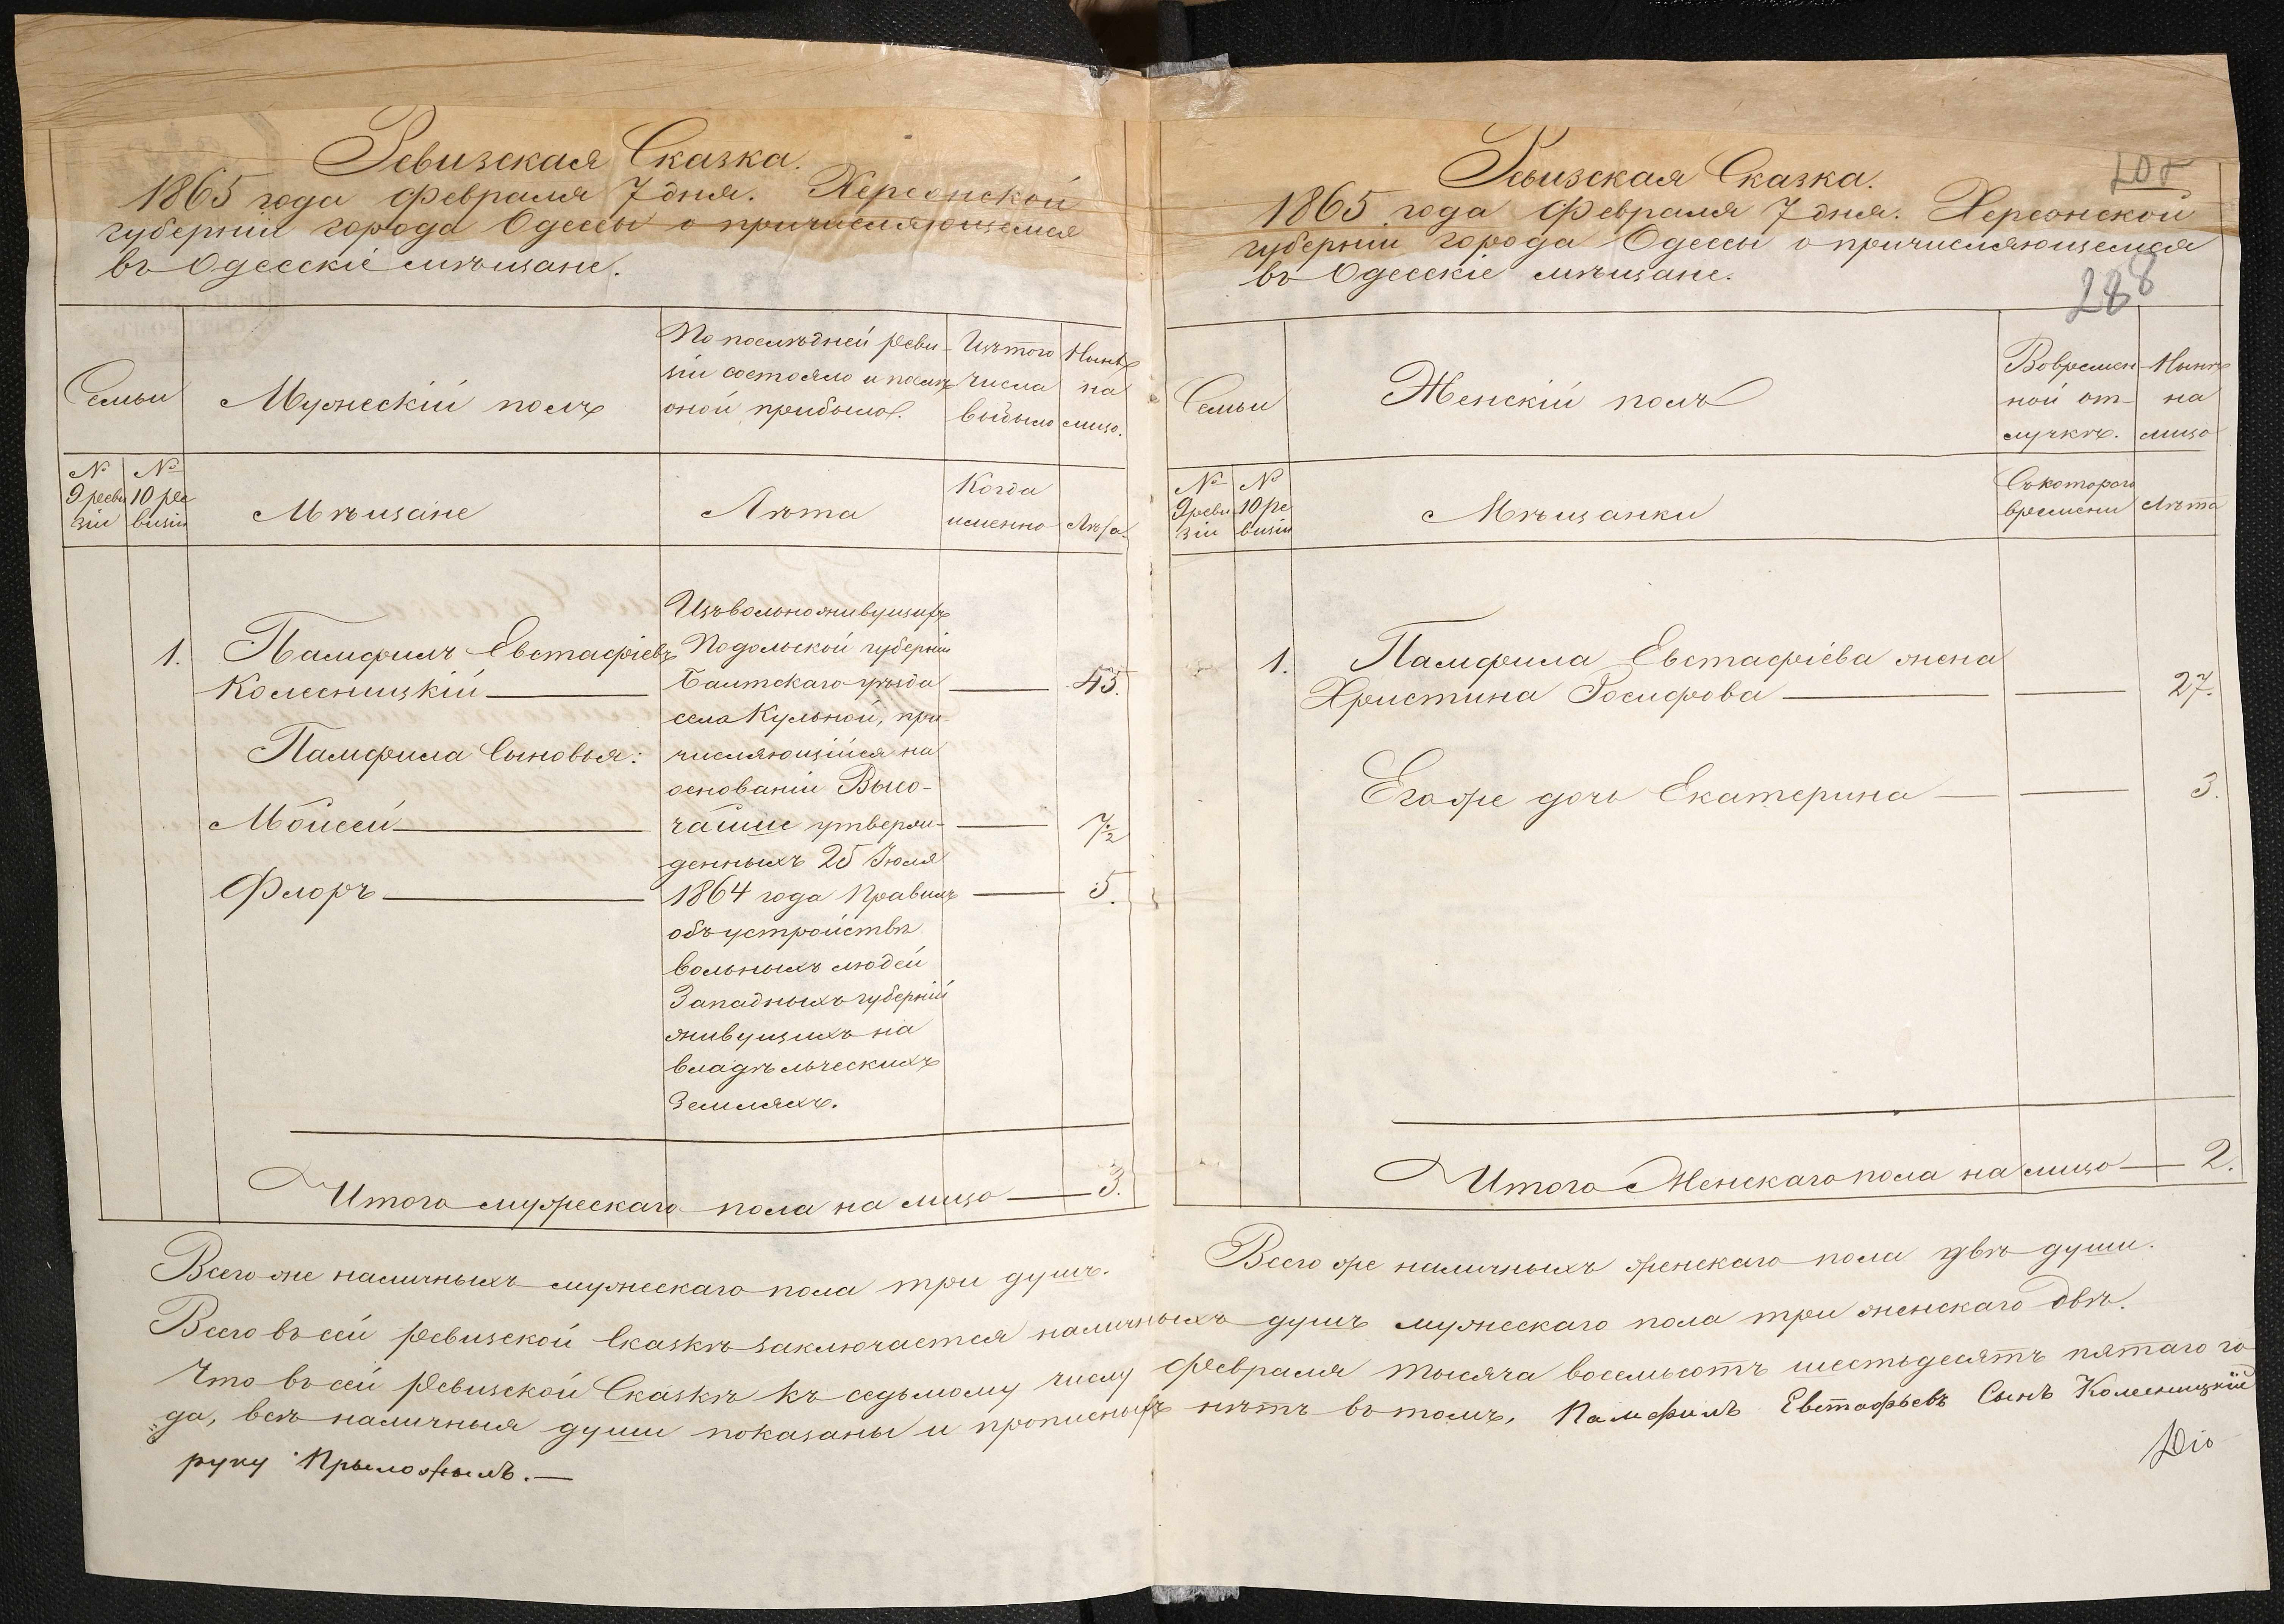 Ревизская Сказка.
1865 года Февраля 7 дня. Херсонской
губерніи города Одессы о причисляющемся
въ Одесскіе мѣщане.
Семьи
Мужескій полъ
По послѣдней реви-
зіи состояло и послѣ
оной прибыло.
Изъ того
числа
выбыло
Нынѣ
на
лицо.
№
9 реви
зіи
№
10 ре
визіи
Мѣщане
Лѣта
Когда
именно
Лѣта.
1.
Памфилъ Евстафіевъ
Колесницкій
45.
Памфила Сыновья:
Мойсей
7½
Флоръ
5.
Изъ вольноживущихъ
Подольской губерніи
Балтскаго уѣзда
села Кульной, при-
числяющійся на
основаніи Высо-
чайше утверж-
денныхъ 25 Іюля
1864 года Правилъ
объ устройствѣ
вольныхъ людей
Западныхъ губерній
живущихъ на
владѣльческихъ
Земляхъ.
Итого мужескаго пола на лицо 3.
Ревизская Сказка.
1865 года Февраля 7 дня. Херсонской
губерніи города Одессы о причисляющемся
въ Одесскіе мѣщане.
288
Семьи
Женскій полъ
Во времен-
ной от-
лучкѣ.
Нынѣ
на
лицо
№
9 реви
зіи
№
10 ре
визіи
Мѣщанки
Съ котораго
времени
Лѣта
1.
Памфила Евстафіева жена
Христина Іосифова
27.
Его же дочь Екатерина
3.
Итого Женскаго пола на лицо 2.
Всего же наличныхъ мужескаго пола три душъ.
Всего же наличныхъ женскаго пола двѣ души.
Всего въ сей ревизской Сказкѣ заключается наличныхъ душъ мужескаго пола три женскаго двѣ.
Что въ сей ревизской Сказкѣ къ седьмому числу Февраля тысяча восемьсотъ шестьдесятъ пятаго го-
да, всѣ наличныя души показаны и прописныхъ нѣтъ въ томъ, Памфилъ Евстафьевъ Сынъ Колесницкій
руку Прыложылъ.